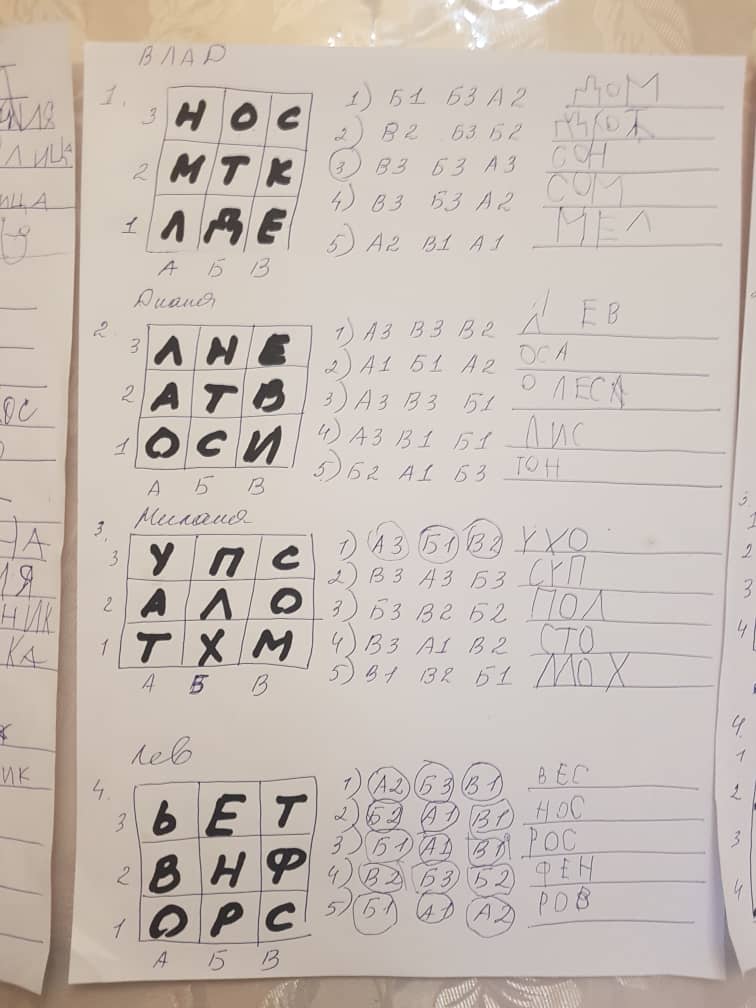 ВЛАД
1.
3 Н О С
2 М Т К
1 Л Д Е
А Б В
1) Б1 Б3 А2 ДОМ
2) В2 Б3 Б2
3) В3 Б3 А3 СОН
4) В3 Б3 А2 СОМ
5) А2 В1 А1 МЕЛ
Диана
2.
3 Л Н Е
2 А Т В
1 О С И
А Б В
1) А3 В3 В2 Л ЕВ
2) А1 Б1 А2 ОСА
3) А3 В3 Б1 О ЛЕСА
4) А3 В1 Б1 ЛИС
5) Б2 А1 Б3 ТОН
3. Милания
3 У П С
2 А Л О
1 Т Х М
А Б В
1) А3 Б1 В2 УХО
2) В3 А3 Б3 СУП
3) Б3 В2 Б2 ПОЛ
4) В3 А1 В2 СТО
5) В1 В2 Б1 МОХ
Лев
4.
3 Ь Е Т
2 В Н Ф
1 О Р С
А Б В
1) А2 Б3 В1 ВЕС
2) Б2 А1 В1 НОС
3) Б1 А1 В1 РОС
4) В2 Б3 Б2 ФЕН
5) Б1 А1 А2 РОВ
ЛИЦА
ИЦА
ОС
НА
ЛЯ
НИК
КА
ИК
3.
1
2
3
4
4.
1
2
3
4